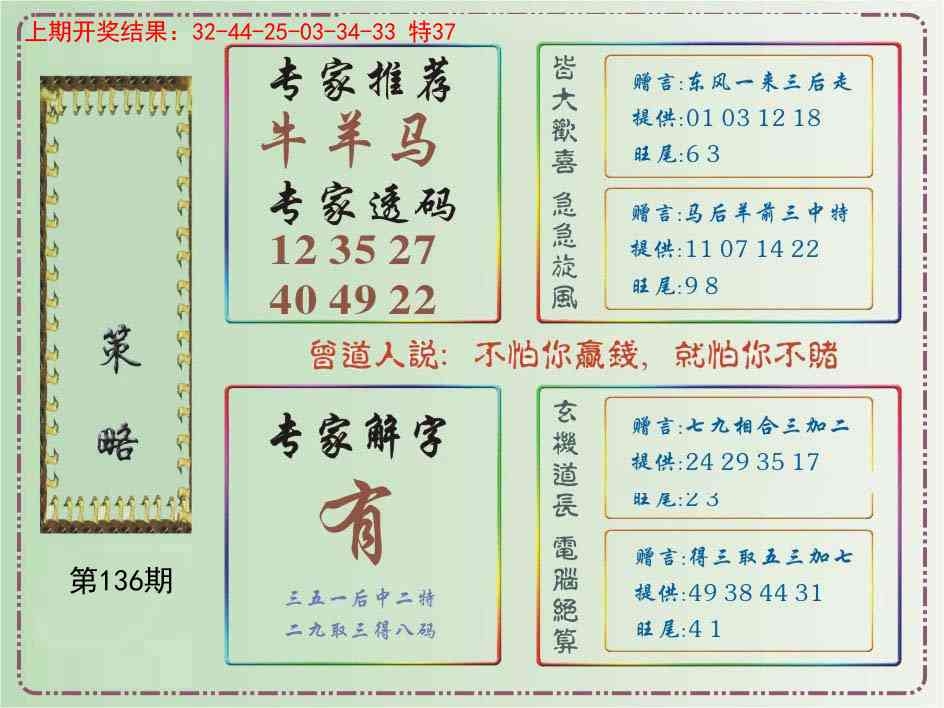 上期开奖结果：32-44-25-03-34-33 特37
策略
第136期
专家推荐
牛羊马
专家透码
12 35 27
40 49 22
皆大歡喜
赠言:东风一来三后走
提供:01 03 12 18
旺尾:6 3
急急旋風
赠言:马后羊前三中特
提供:11 07 14 22
旺尾:9 8
曾道人説: 不怕你赢錢, 就怕你不賭
专家解字
有
三五一后中二特
二九取三得八码
玄機道長
赠言:七九相合三加二
提供:24 29 35 17
旺尾:2 3
電腦絕算
赠言:得三取五三加七
提供:49 38 44 31
旺尾:4 1